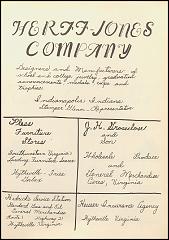 HERFF-JONES
COMPANY
Designers and Manufacturers of
school and college jewelry, graduation
announcements, medals, cups and
trophies.
Indianapolis, Indiana
Representative
Furniture
Stores
Southwestern Virginia's
Leading Furniture
Wytheville
J. H.
and
Son
Wholesale Produce
and
General Merchandise
Virginia
Service Station
Gas and Oil
General Merchandise
Route
Wytheville Virginia
Insurance Agency
Wytheville Virginia